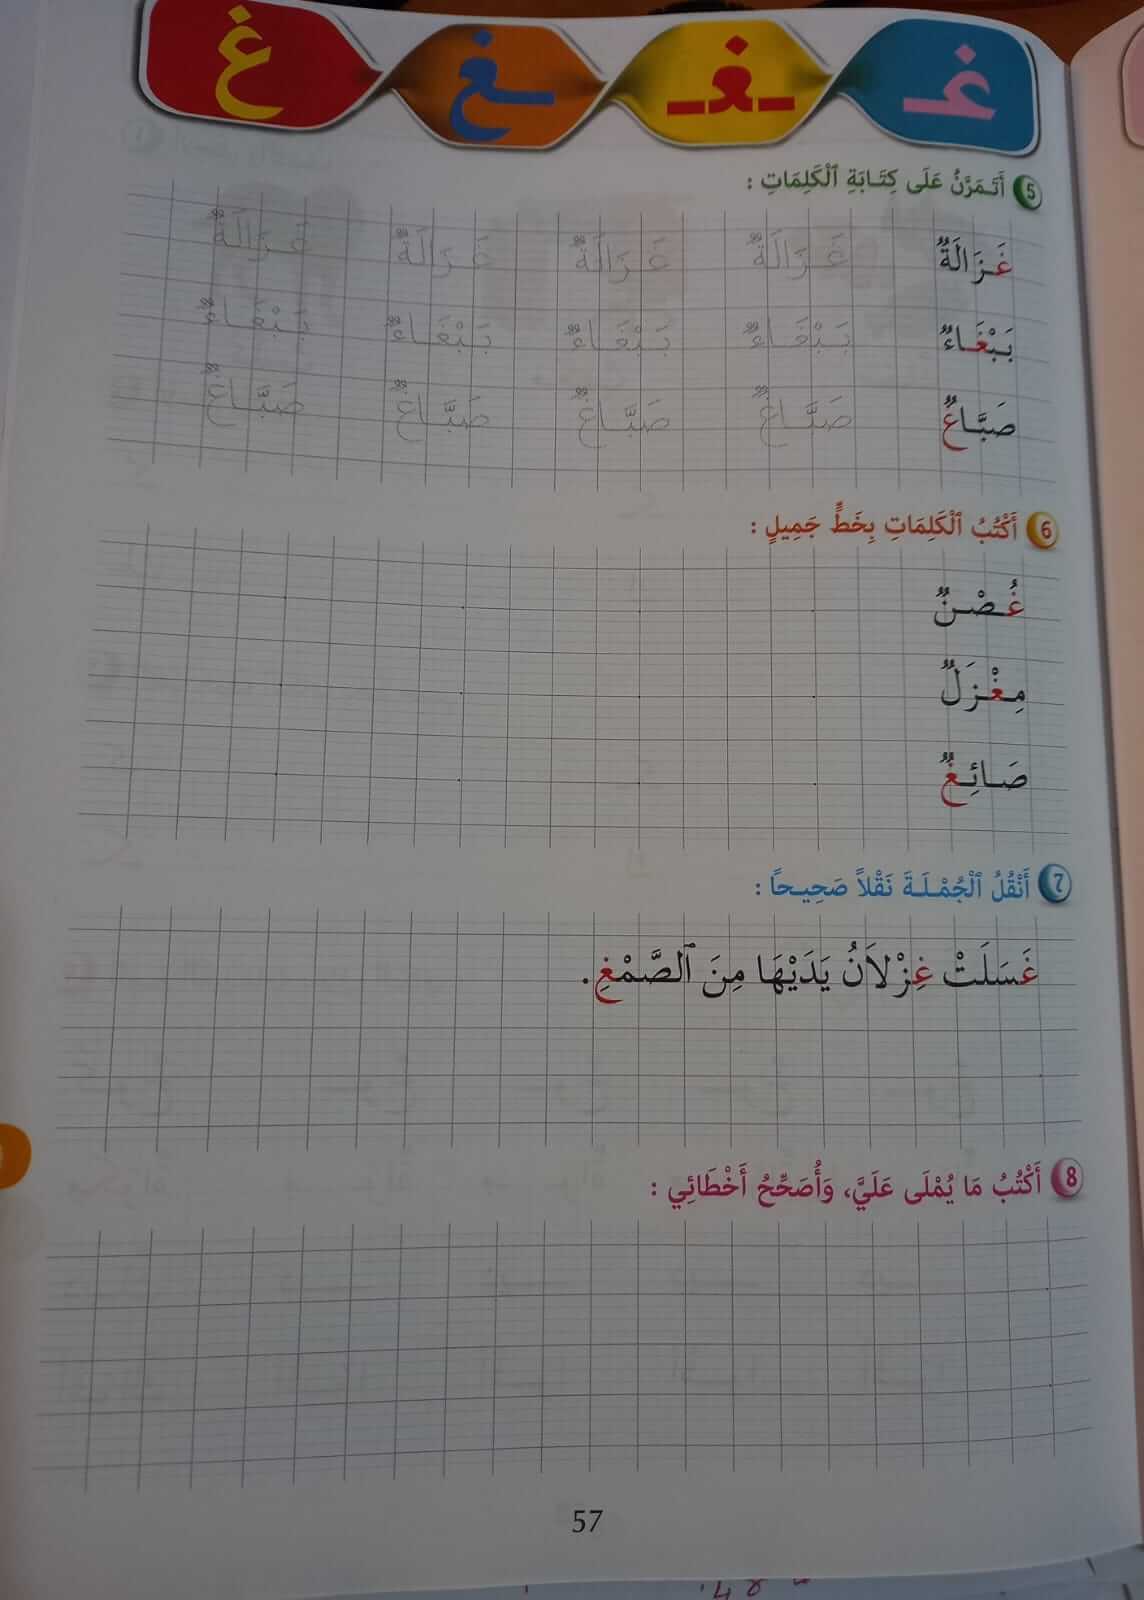 غـ ـغـ ـغ غ
5 أَتَمَرَّنُ عَلَى كِتَابَةِ ٱلْكَلِمَاتِ :
غَزَالَةٌ غَزَالَةٌ غَزَالَةٌ غَزَالَةٌ غَزَالَةٌ
بَبْغَاءٌ بَبْغَاءٌ بَبْغَاءٌ بَبْغَاءٌ بَبْغَاءٌ
صَبَّاغٌ صَبَّاغٌ صَبَّاغٌ صَبَّاغٌ صَبَّاغٌ
6 أَكْتُبُ ٱلْكَلِمَاتِ بِخَطٍّ جَمِيلٍ :
غُصْنٌ
مِغْزَلٌ
صَائِغٌ
7 أَنْقُلُ ٱلْجُمْلَةَ نَقْلاً صَحِيحاً :
غَسَلَتْ غِزْلاَنُ يَدَيْهَا مِنَ ٱلصَّمْغِ.
8 أَكْتُبُ مَا يُمْلَى عَلَيَّ، وَأُصَحِّحُ أَخْطَائِي :
57